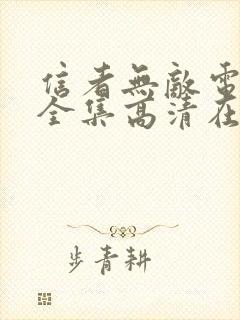 信者無敵電
全集高清在
步青耕